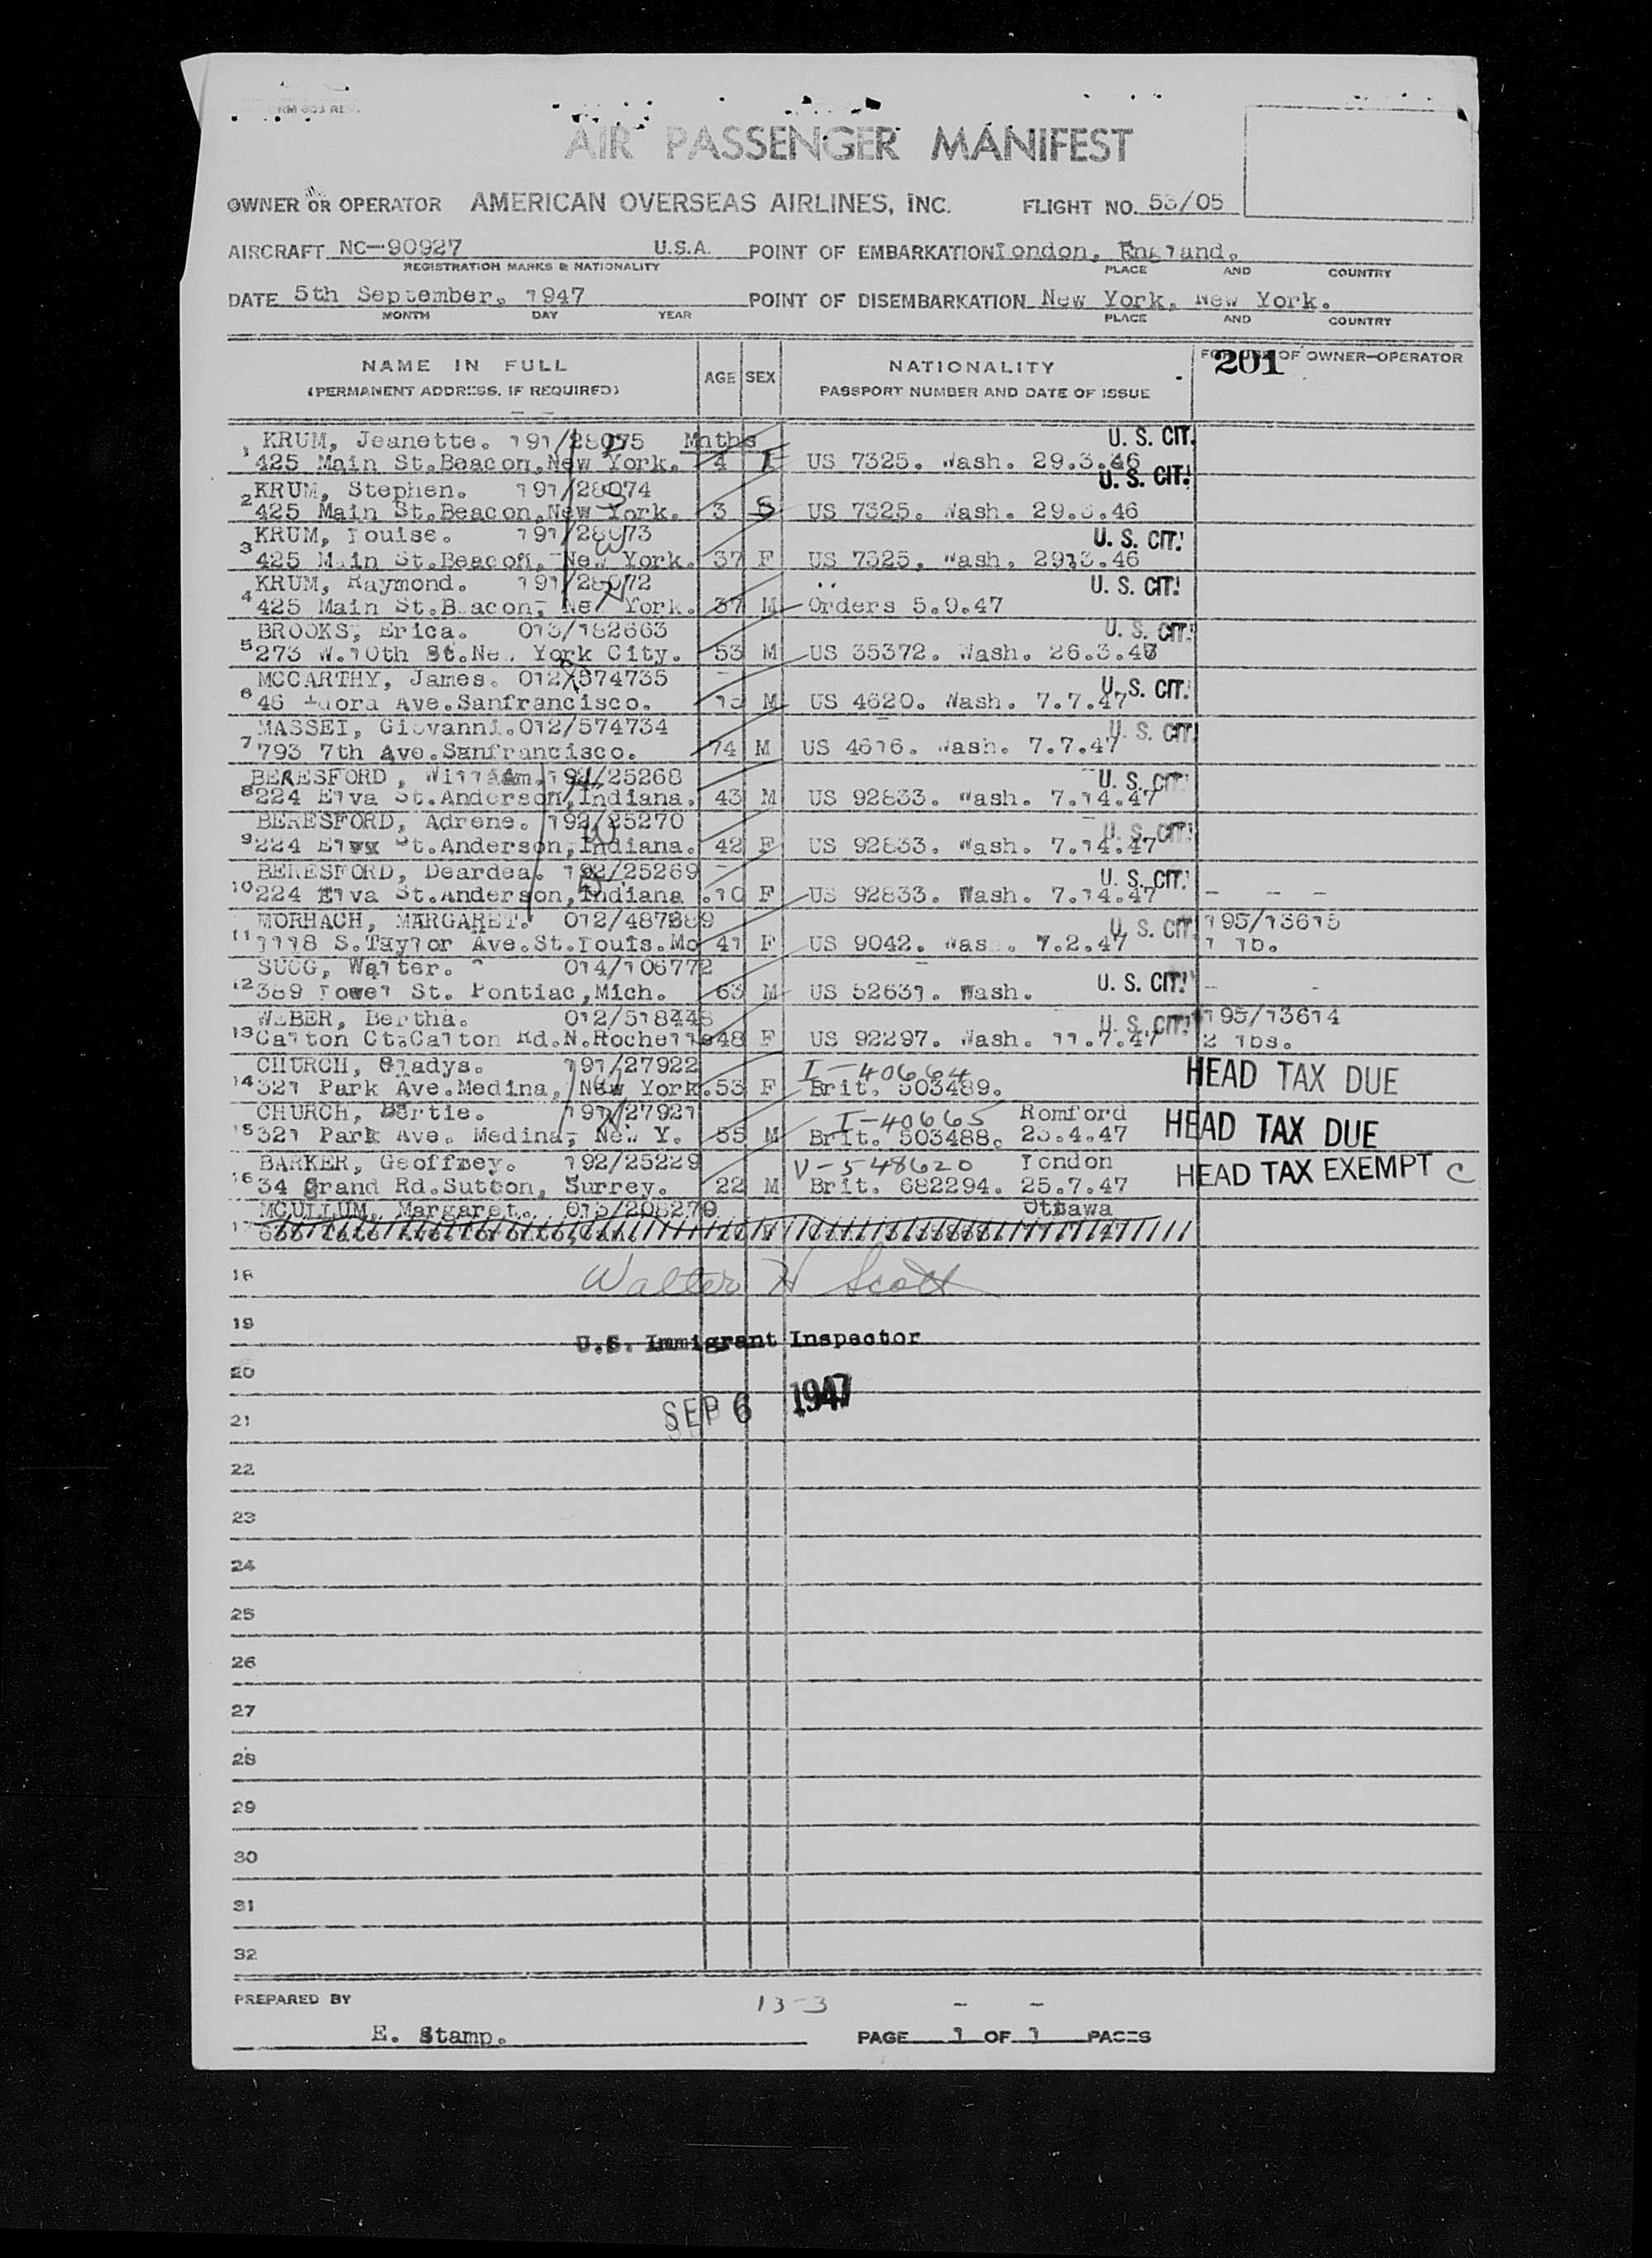 AIR PASSENGER MANIFEST
OWNER OR OPERATOR AMERICAN OVERSEAS AIRLINES, INC. FLIGHT NO. 55/05
AIRCRAFT NC-90927 U.S.A. POINT OF EMBARKATION London, England.
REGISTRATION MARKS & NATIONALITY PLACE AND COUNTRY
DATE 5th September, 1947 POINT OF DISEMBARKATION New York, New York.
MONTH DAY YEAR PLACE AND COUNTRY
NAME IN FULL AGE SEX NATIONALITY OF OWNER-OPERATOR
(PERMANENT ADDRESS, IF REQUIRED) PASSPORT NUMBER AND DATE OF ISSUE 201
1 KRUM, Jeanette. 191/28075 Mnths U. S. CIT.
425 Main St.Beacon,New York. 4 US 7325. Wash. 29.3.46
2 KRUM, Stephen. 191/28074 U. S. CIT.
425 Main St.Beacon,New York. 3 US 7325. Wash. 29.3.46
3 KRUM, Louise. 191/28073 U. S. CIT.
425 Main St.Beacon, New York. 37 F US 7325, Wash. 29.3.46
4 KRUM, Raymond. 191/28072 U. S. CIT.
425 Main St.Beacon, New York. 37 M Orders 5.9.47
5 BROOKS, Erica. 013/182663 U. S. CIT.
273 W.10th St.New York City. 53 M US 35372. Wash. 26.3.
6 MCCARTHY, James. 012/574735 U. S. CIT.
Ave.Sanfrancisco. M US 4620. Wash. 7.7.47
7 MASSEI, Giovanni.012/574734 U. S. CIT.
793 7th Ave.Sanfrancisco. 74 M US 4616. Wash. 7.7.47
8 BERESFORD, William.192/25268 U. S. CIT.
224 Elva St.Anderson,Indiana. 43 M US 92833. Wash. 7.14.47
9 BERESFORD, Adrene. 192/25270 U. S. CIT.
224 St.Anderson,Indiana. 42 F US 92833. Wash. 7.14.47
10 BERESFORD, Deardea. 192/25269 U. S. CIT.
224 Elva St.Anderson,Indiana .10 F US 92833. Wash. 7.14.47 - - -
11 MORHACH, MARGARET. U. S. CIT. 195/13615
1118 S.Taylor Ave.St.Louis.Mo 41 F US 9042. Wash. 7.2.47 1 lb.
12 Walter. 014/106772
389 Lowel St. Pontiac,Mich. 63 M US 52631. Wash. U. S. CIT.
13 WEBER, Bertha. 012/518448 U. S. CIT. 195/13614
Calton Ct.Calton Rd.N.Rochelle 48 F US 92297. Wash. 11.7.47 2 lbs.
14 CHURCH, Gladys. 191/27922 I-40664 HEAD TAX DUE
321 Park Ave.Medina, New York.53 F Brit. 503489.
15 CHURCH, Bertie. 191/27921 I-40665 Romford HEAD TAX DUE
321 Park Ave. Medina, New Y. 55 M Brit. 503488. 23.4.47
16 BARKER, Geoffrey. 192/25229 V-548620 London HEAD TAX EXEMPT C
34 Grand Rd.Sutton, Surrey. 22 M Brit. 682294. 25.7.47
17 MCULLUM, Margaret. 013/208279 Ottawa
18 Walter H Scott
19
U.S. Immigrant Inspector
20
21 SEP 6 1947
22
23
24
25
26
27
28
29
30
31
32
PREPARED BY 13-3 - -
E. Stamp. PAGE 1 OF 1 PAGES